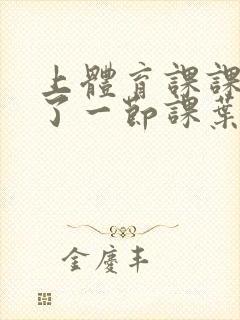 上體育課課
了一節課葉
金慶丰